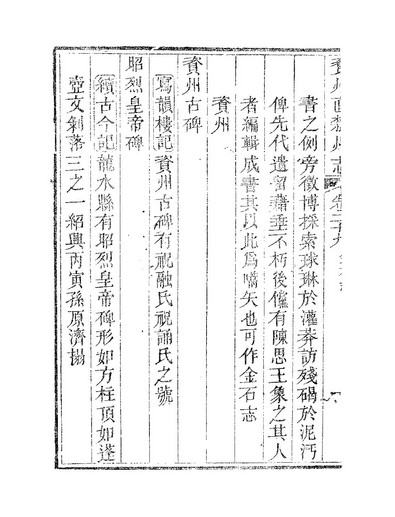 資州直隸州志 卷二十九
書之例旁徵博採索球琳於灌莽訪殘碣於泥沔
俾先代遺留蕭垂不朽後儻有陳思王象之其人
者編輯成書其以此為嚆矢也可作金石志
資州
資州古碑
寫韻樓記資州古碑有祝融氏祝誦氏之號
昭烈皇帝碑
續古今記龍水縣有昭烈皇帝碑形如方柱頂如蓬
壺文剝落三之一紹興丙寅孫原濟搨